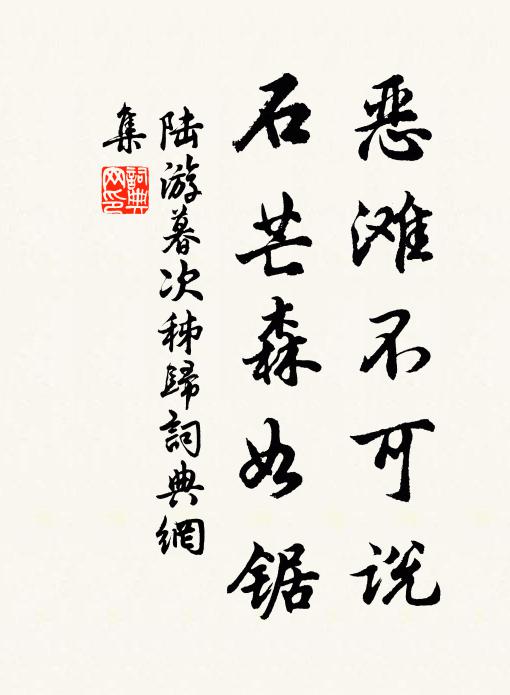 恶滩不可说
石芒森如锯
陆游暮次秭歸詞典網
集
詞典
网印